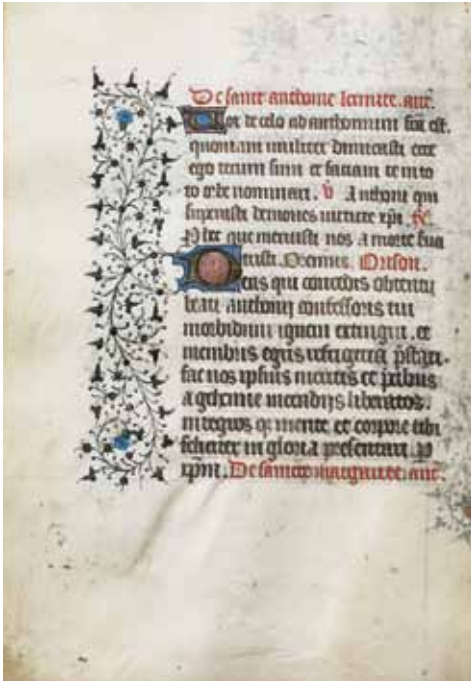 De saint anthoine lermite. añt.
Vox de celo ad anthonium fca est.
quoniam viriliter dimicasti ecce
ego tecum sum et faciam te in to
to orbe nominari. V Anthoni qui
demones virtute xpi. R
que meruisti nos a morte
Oremus. Orison.
Deus qui concedis obtentu
beati anthonij confessoris tui
morbidum ignem extingui. et
membris egris refrigeria pstari.
fac nos ipsius meritis et pcibus
a gehenne incendijs liberatos.
integros mente et corpore tibi
feliciter in gloria presentari. P
xpm. De saincte marguerite. añt.